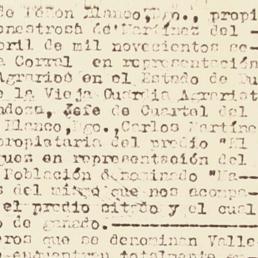 de Peñon Blanco, Dgo., propi
onestrosa de Martínez del -
bril de mil novecientos se-
a Corral en representación
Agrarios en el Estado de Du
e la Vieja Guardia Agrarist
ndoza, Jefe de Cuartel del
Blanco, Dgo., Carlos Martíne
propietaria del predio "El
quez en representación del
Población denominado "Ma-
s del mismo que nos acompa-
el predio citado y el cual
o de ganado.----------------
eros que se denominan Valle
encuentran totalmente